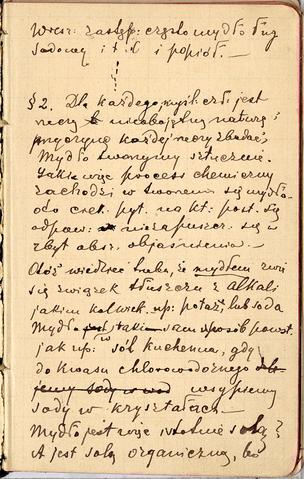 zastęp: często mydło ług
sodowy i t. d. i popiół.—
§ 2. Dla każdego, myśl: czł: jest
rzeczy niezbędną naturę i
przyczynę każdej rzeczy zbadać.
Mydło tworzymy sztucznie.
Jaki więc process chemiczny
zachodzi w tworzeniu się mydła
oto ciek. pyt. na kt: post. się
odpow: nie zapuszcz. się w
zbyt obsz. objaśnienia.—
Otóż wiedzieć trzeba, że mydłem zwie
się związek tłuszczu z alkali
jakim kolwiek np: potaż, lub soda
Mydło jest takim sam sposób powst.
jak np: w sól kuchenna, gdy
do kwasu chlorowodornego
jemy sody w wod wsypiemy
sody w kryształach.
Mydło jest więc istotnie solą?
A jest solą organiczną, bo